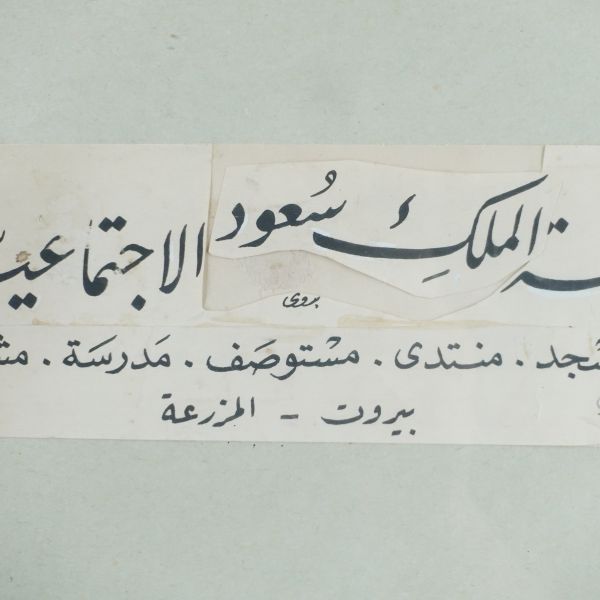 ـة الملكِ سُعود الاجتماعيـ
بروى
ـجد . منتدى . مستوصَف . مَدرسَة . مشـ
بيروت - المزرعة